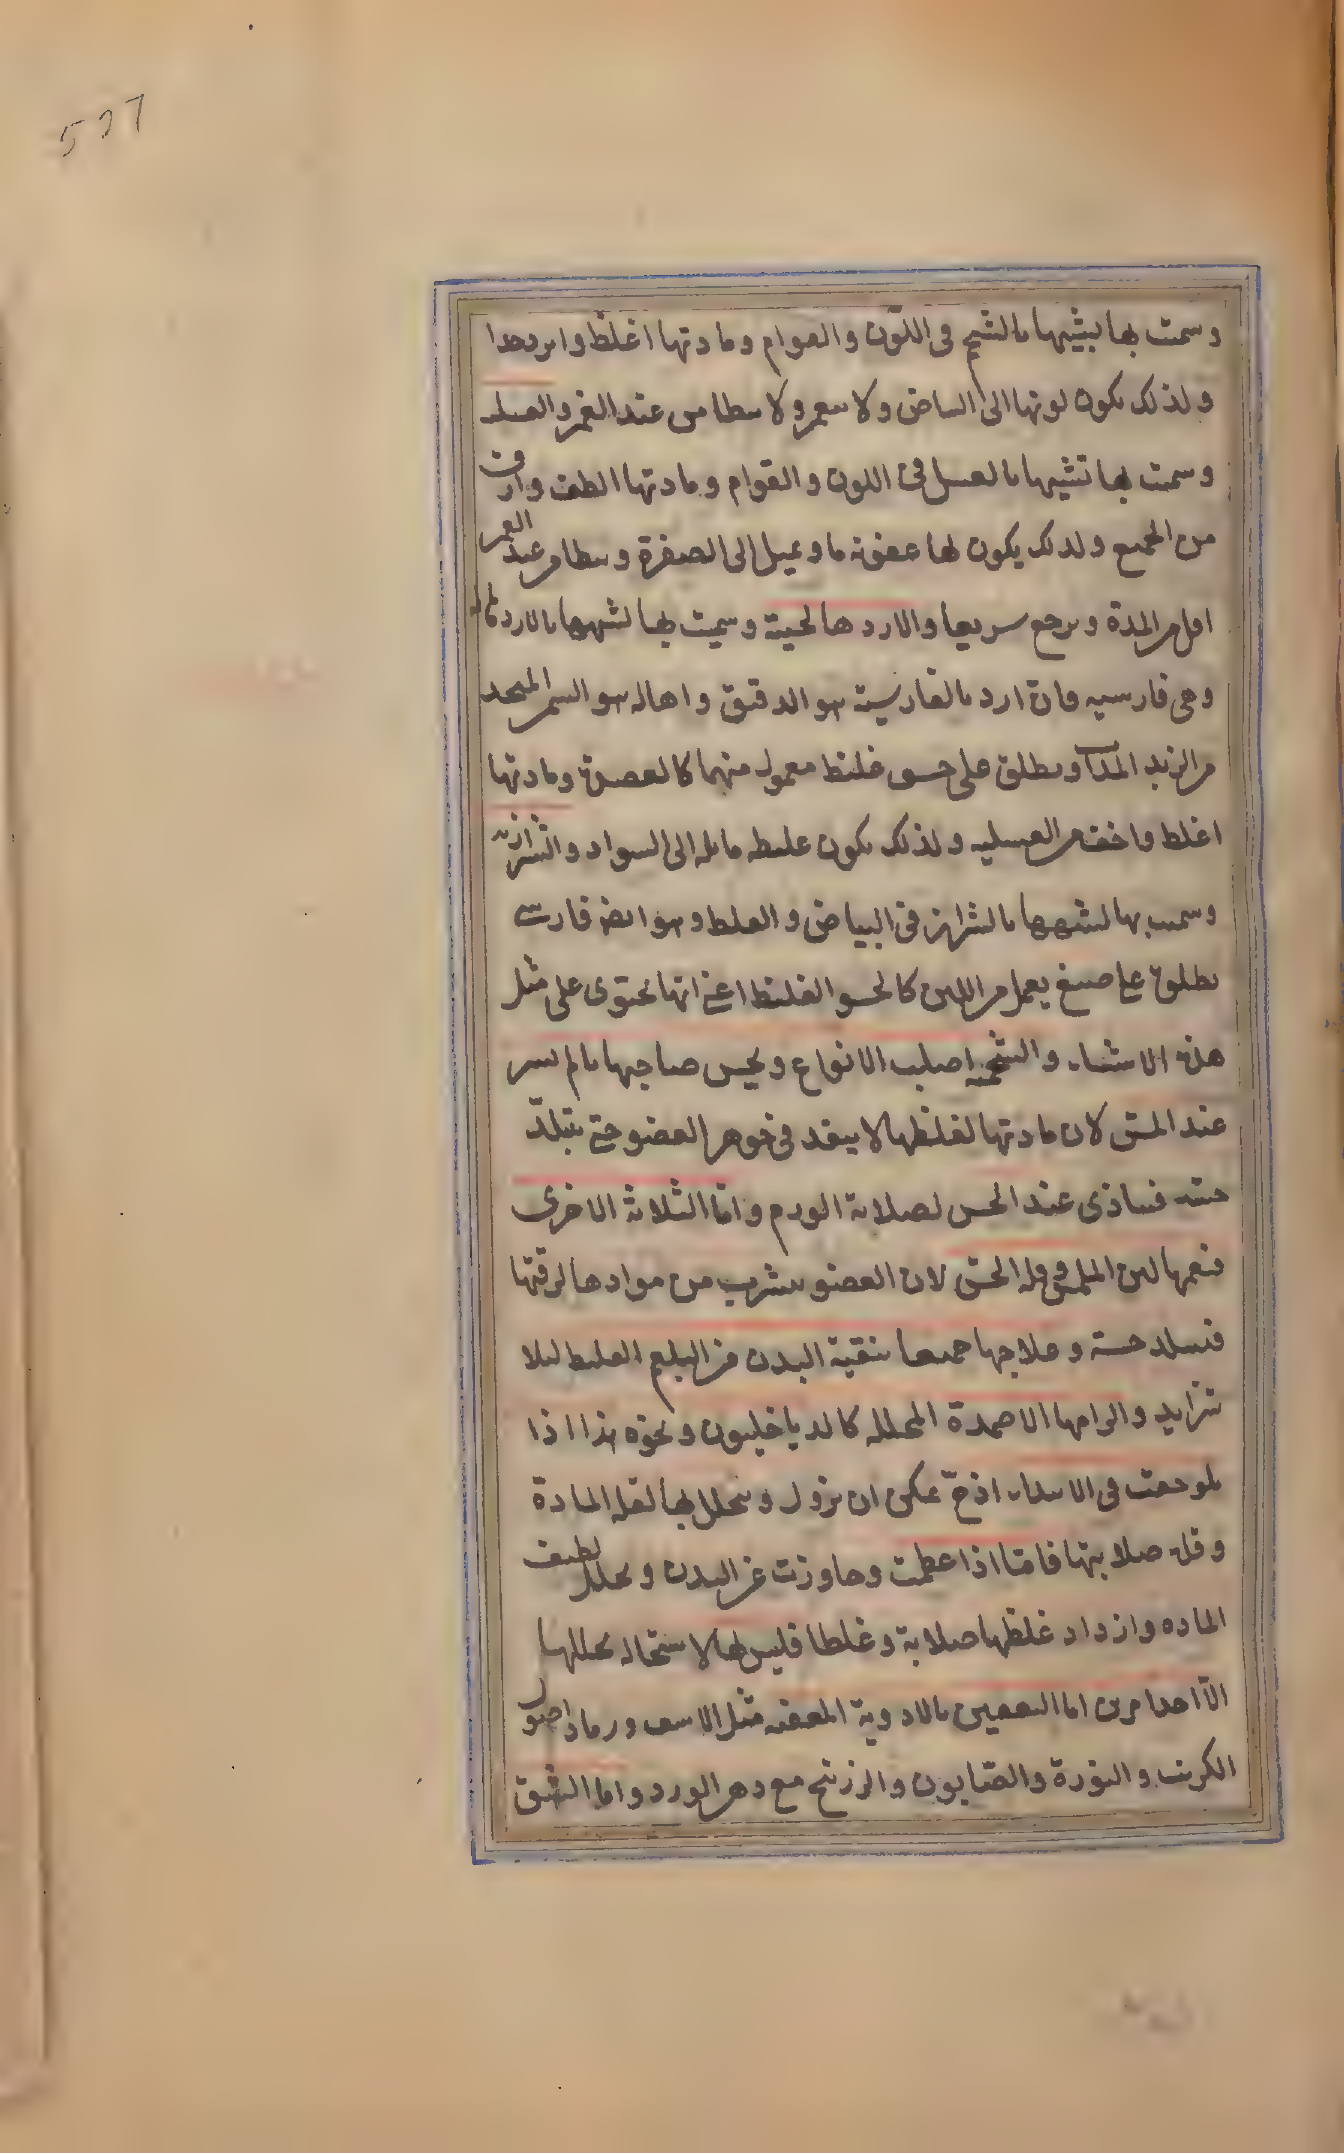 577
وسمت بها تشبيها بالشحم فى اللّون والقوام ومادتها اغلظ وابرد جدا
ولذلك يكون لونها الى البياض ولا ينغمر ولا يتطامن عند الغمز والعسليه
وسمت بها تشبيها بالعسل فى اللون والقوام ومادتها الطف وارق
من الجميع ولذلك يكون لها عفونة ما وتميل الى الصفرة ويتطامن عند الغمز
اقل من المدة ويرجع سريعا والاردهالجية وسميت بها لشبهها بالاردهاله
وهى فارسيه فان ارد بالفارسية هو الدقيق واهاله هو السمن المتخذ
من الزبد المذاب ويطلق على حسو غليظ معمول منهما كالعصيدة ومادتها
اغلظ واخف من العسليه ولذلك يكون غليظه مايله الى السواد والشرازيه
وسميت بها لشبهها بالشراز فى البياض والغلظ وهو ايضا فارسى
يطلق على صبغ يعمل من اللبن كالحسو الغليظ اعنى انها تحتوى على مثل
هذه الاشياء والشحميه اصلب الانواع ويحس صاحبها بالم يسير
عند المس لان مادتها لغلظها لا ينفذ فى جوهر العضو حتى يتبلّد
حسه فيتاذى عند الحس لصلابة الورم وامّا الثلاثة الاخرى
فيعمها لين الملمس وقله الحسّ لان العضو يتشرب من موادها لرقتها
فيتبلد حسه وعلاجها جميعا تنقية البدن من البلغم الغليظ ليلا
تتزايد والزامها الاضمدة المحلله كالدياخيلون ونحوه هذا اذا
لوحقت فى الابتداء اذ ح يمكن ان يزول ويتحلل بها لقله المادة
وقله صلابتها فامّا اذا عظمت وجاوزت عن البدن وتحلل لطيف
الماده وازداد غلظها صلابة وغلظا فليس لها لاستحاله تحللها
الّا احد امرين اما التعفين بالادوية المعفنه مثل الاسف ورماد اصول
الكرنب والنورة والصّابون والزرنيخ مع دهن الورد واما الشق